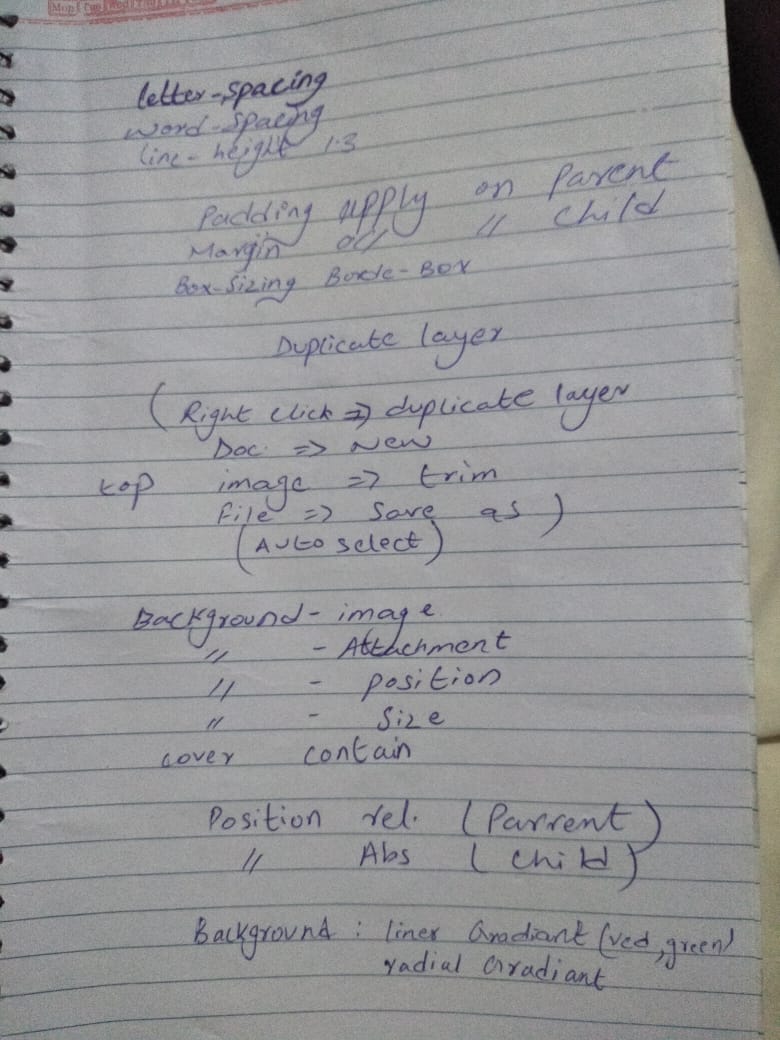 letter-spacing
word-spacing
line-height 1.3
Padding apply on Parent
Margin " child
Box-Sizing Borde-Box
Duplicate layer
(Right click => duplicate layer
Doc. => New
top image => trim
File => Save as)
(Auto select)
Background-image
" - Attachment
" - position
" - Size
cover contain
Position rel. (Parrent)
" Abs (child)
Background: liner Gradiant (red, green)
radial Gradiant